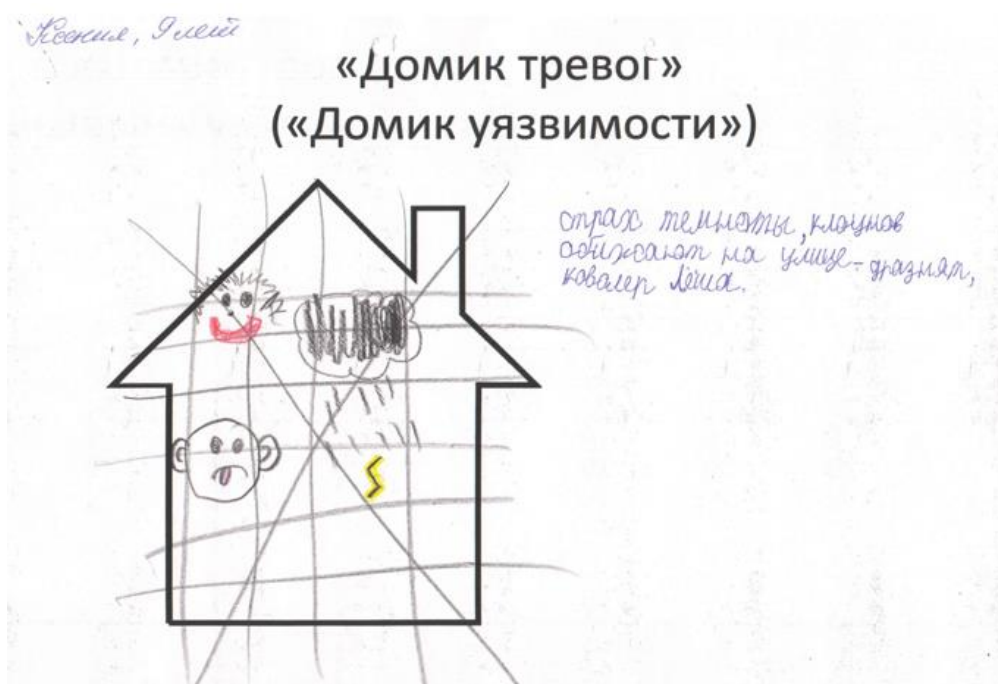 Ксения, 9 лет
«Домик тревог»
(«Домик уязвимости»)
страх темноты, клоунов
обижают на улице - дразнят,
ковалер Лёша.